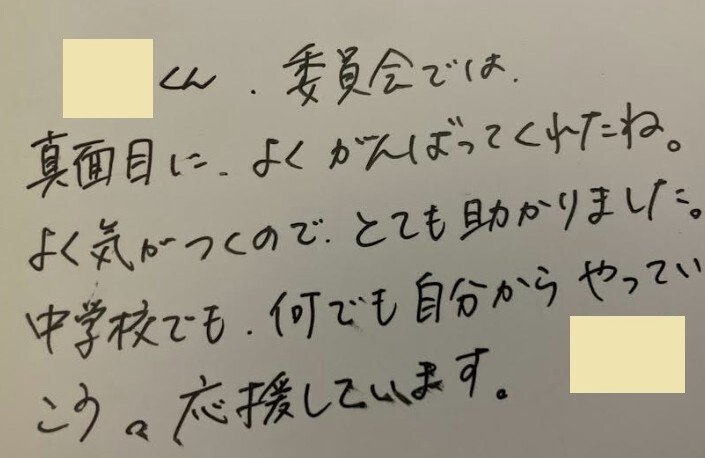 くん、委員会では、
真面目に、よくがんばってくれたね。
よく気がつくので、とても助かりました。
中学校でも、何でも自分からやってい
こう。応援しています。